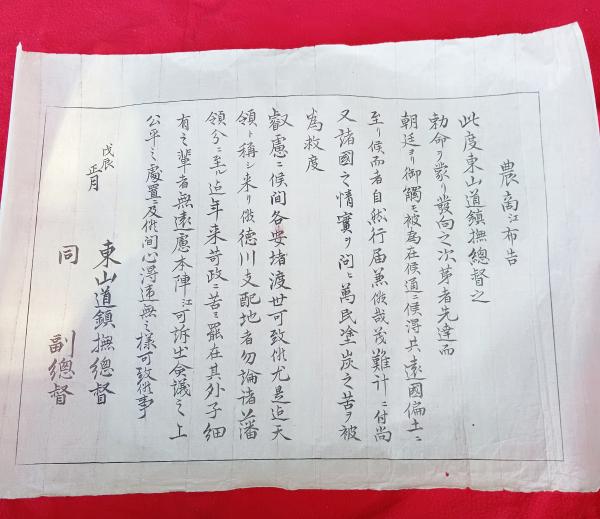 農商江布告
此度東山道鎮撫總督之
勅命ヲ蒙リ發向之次第者先達而
朝廷ヨリ御觸モ被為在候通ニ候得共遠國偏土ニ
至リ候而者自然行届兼候哉茂難計ニ付尚
又諸國之情實ヲ問ヒ萬民塗炭之苦ヲ被
為救度
叡慮ニ候間各安堵渡世可致候尤是迠天
領ト稱シ来リ候德川支配地者勿論諸藩
領分ニ至ル迠年来苛政ニ苦ミ罷在其外子細
有之輩者無遠慮本陣江可訴出會議之上
公平之處置ニ及候間心得違無之様可致候事
戊辰
正月
東山道鎮撫總督
同 副總督